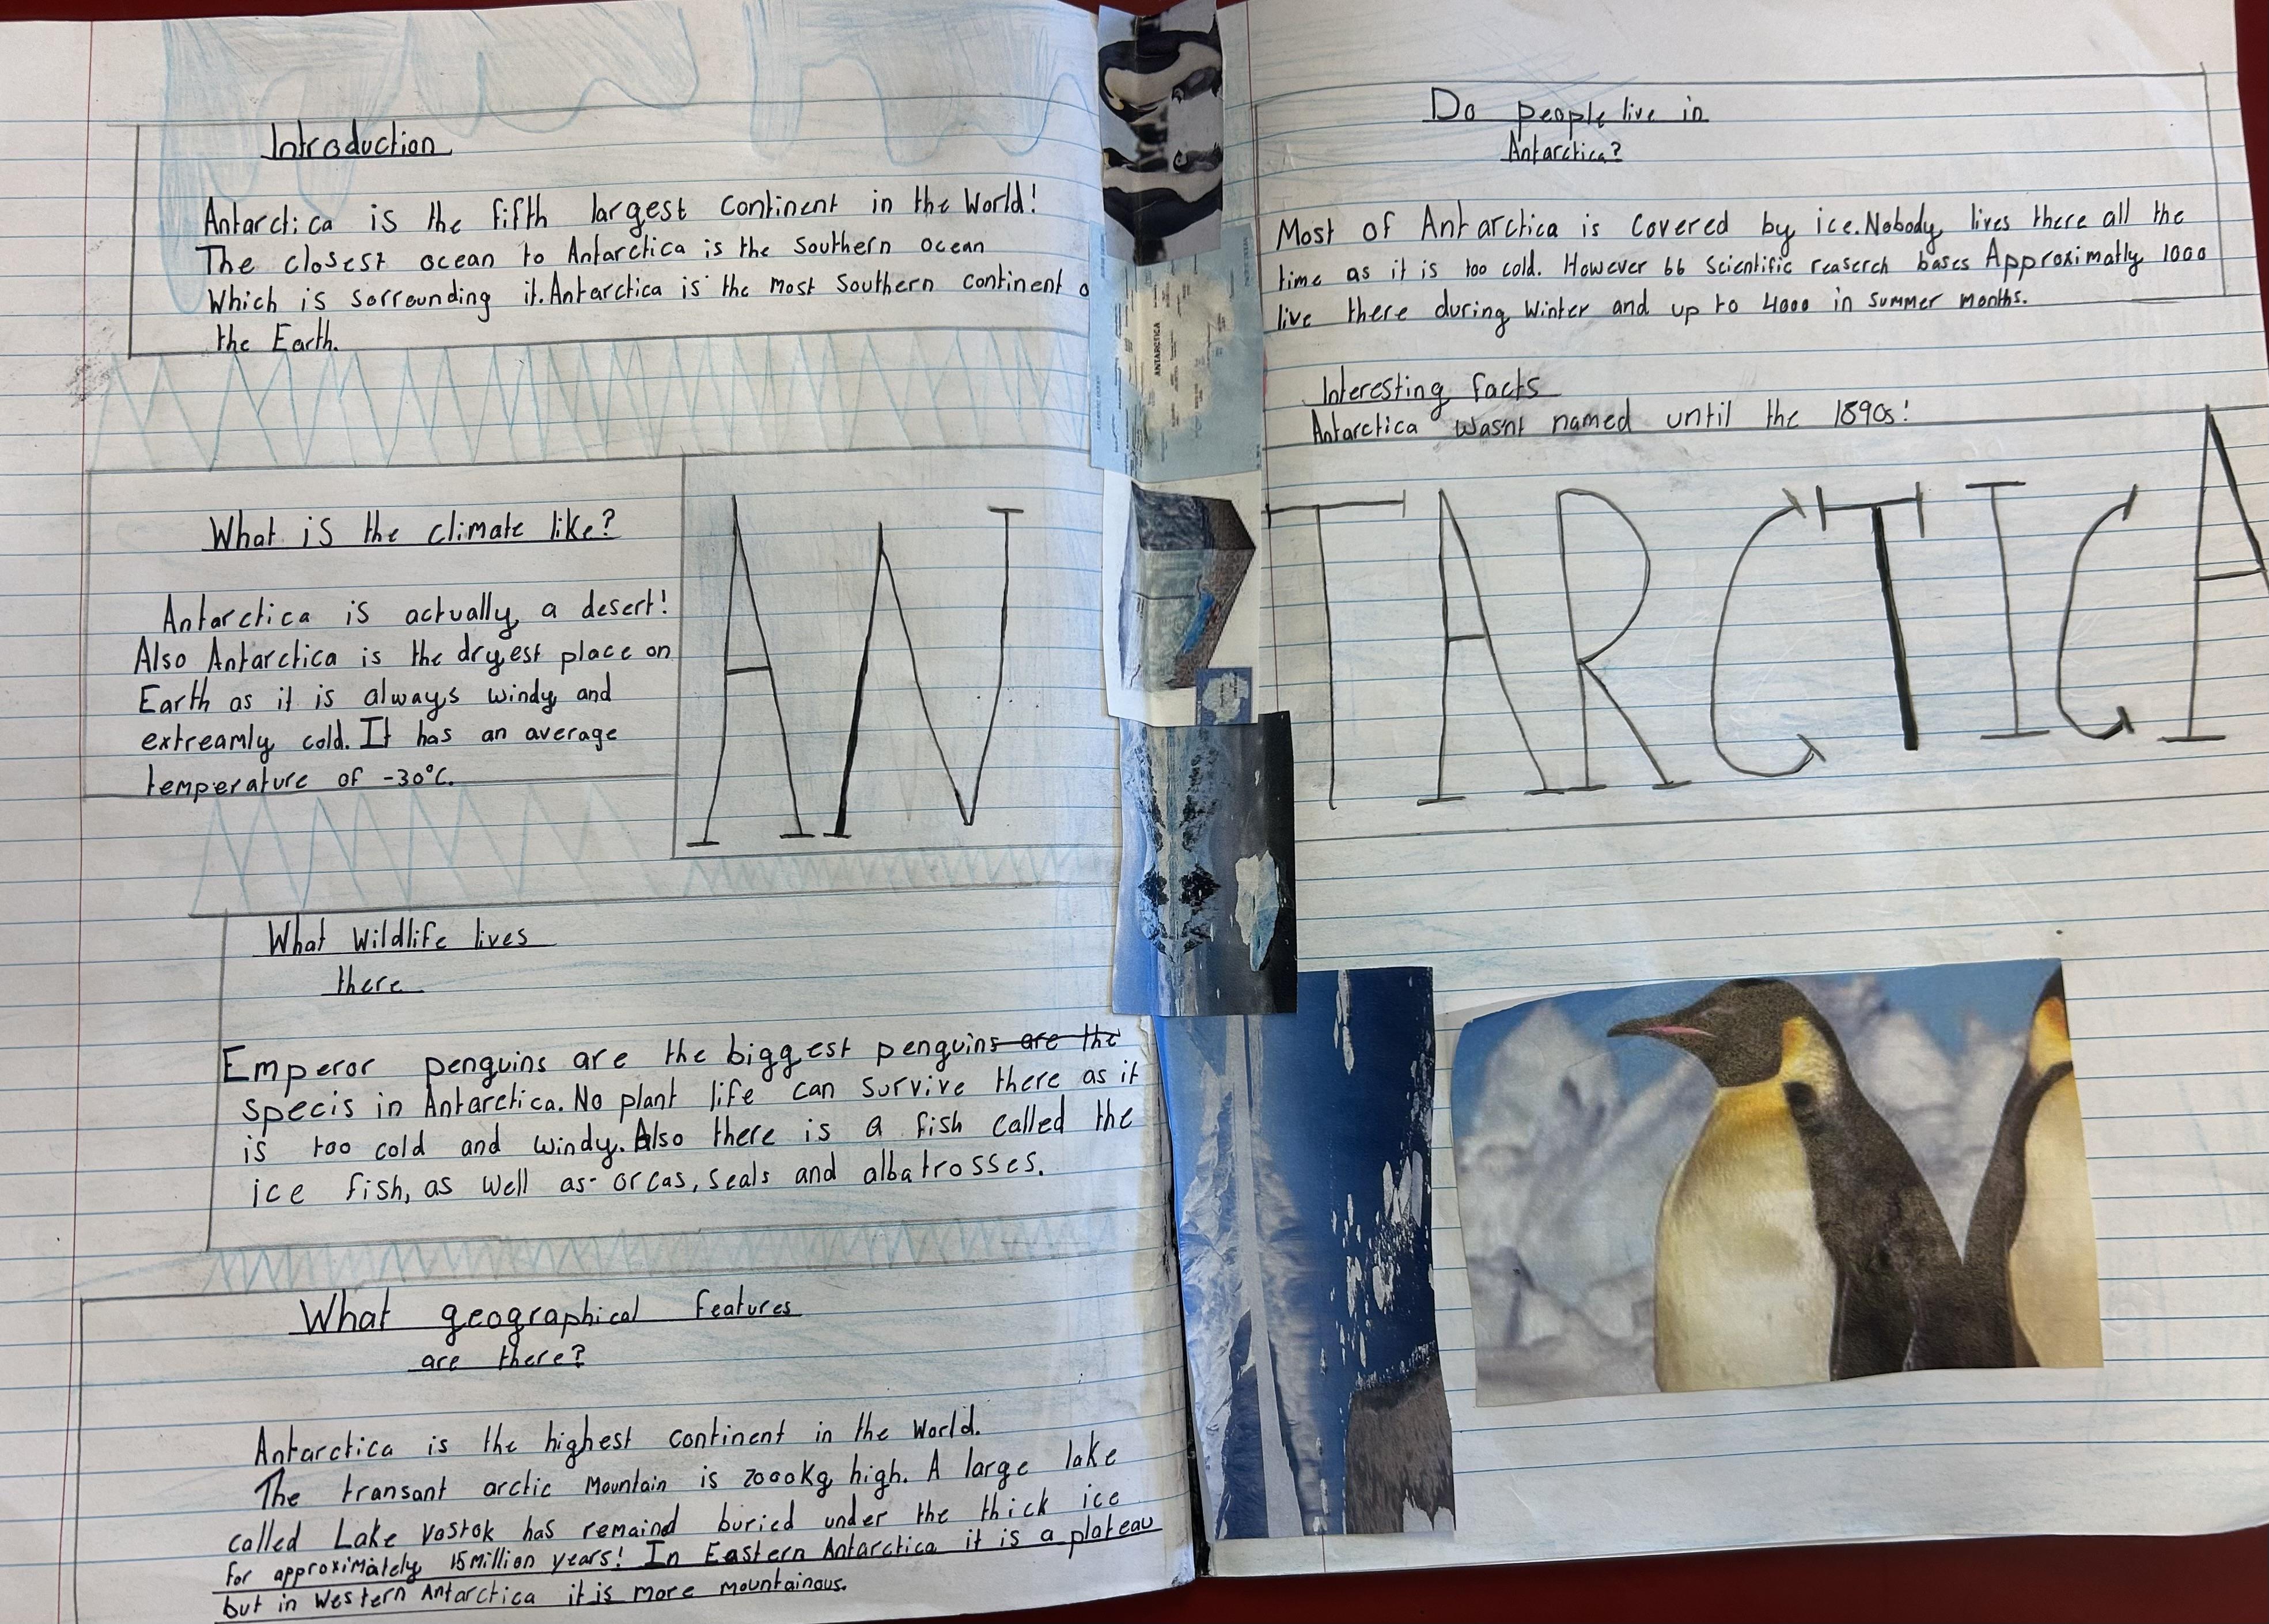 Introduction
Antarctica is the fifth largest continent in the World!
The closest ocean to Antarctica is the Southern ocean
Which is sorrounding it. Antarctica is the most Southern continent o
the Earth.
What is the climate like?
Antarctica is actually a desert!
Also Antarctica is the dryest place on
Earth as it is always windy and
extreamly cold. It has an average
temperature of -30°C.
What Wildlife lives
there
Emperor penguins are the biggest penguins are the
specis in Antarctica. No plant life can survive there as it
is too cold and windy. Also there is a fish called the
ice fish, as well as orcas, seals and albatrosses.
What geographical features
are there?
Antarctica is the highest continent in the World.
The transant arctic Mountain is 2000Kg high. A large lake
called Lake Vostok has remaind buried under the thick ice
for approximately 15 million years! In Eastern Antarctica it is a plateau
but in Western Antarctica it is more mountainous.
ANTARCTICA
Do people live in
Antarctica?
Most of Antarctica is covered by ice. Nobody lives there all the
time as it is too cold. However 66 Scientific reaserch bases Approximatly 1000
live there during Winter and up to 4000 in summer months.
Interesting facts
Antarctica wasnt named until the 1890s!
ANTARCTICA